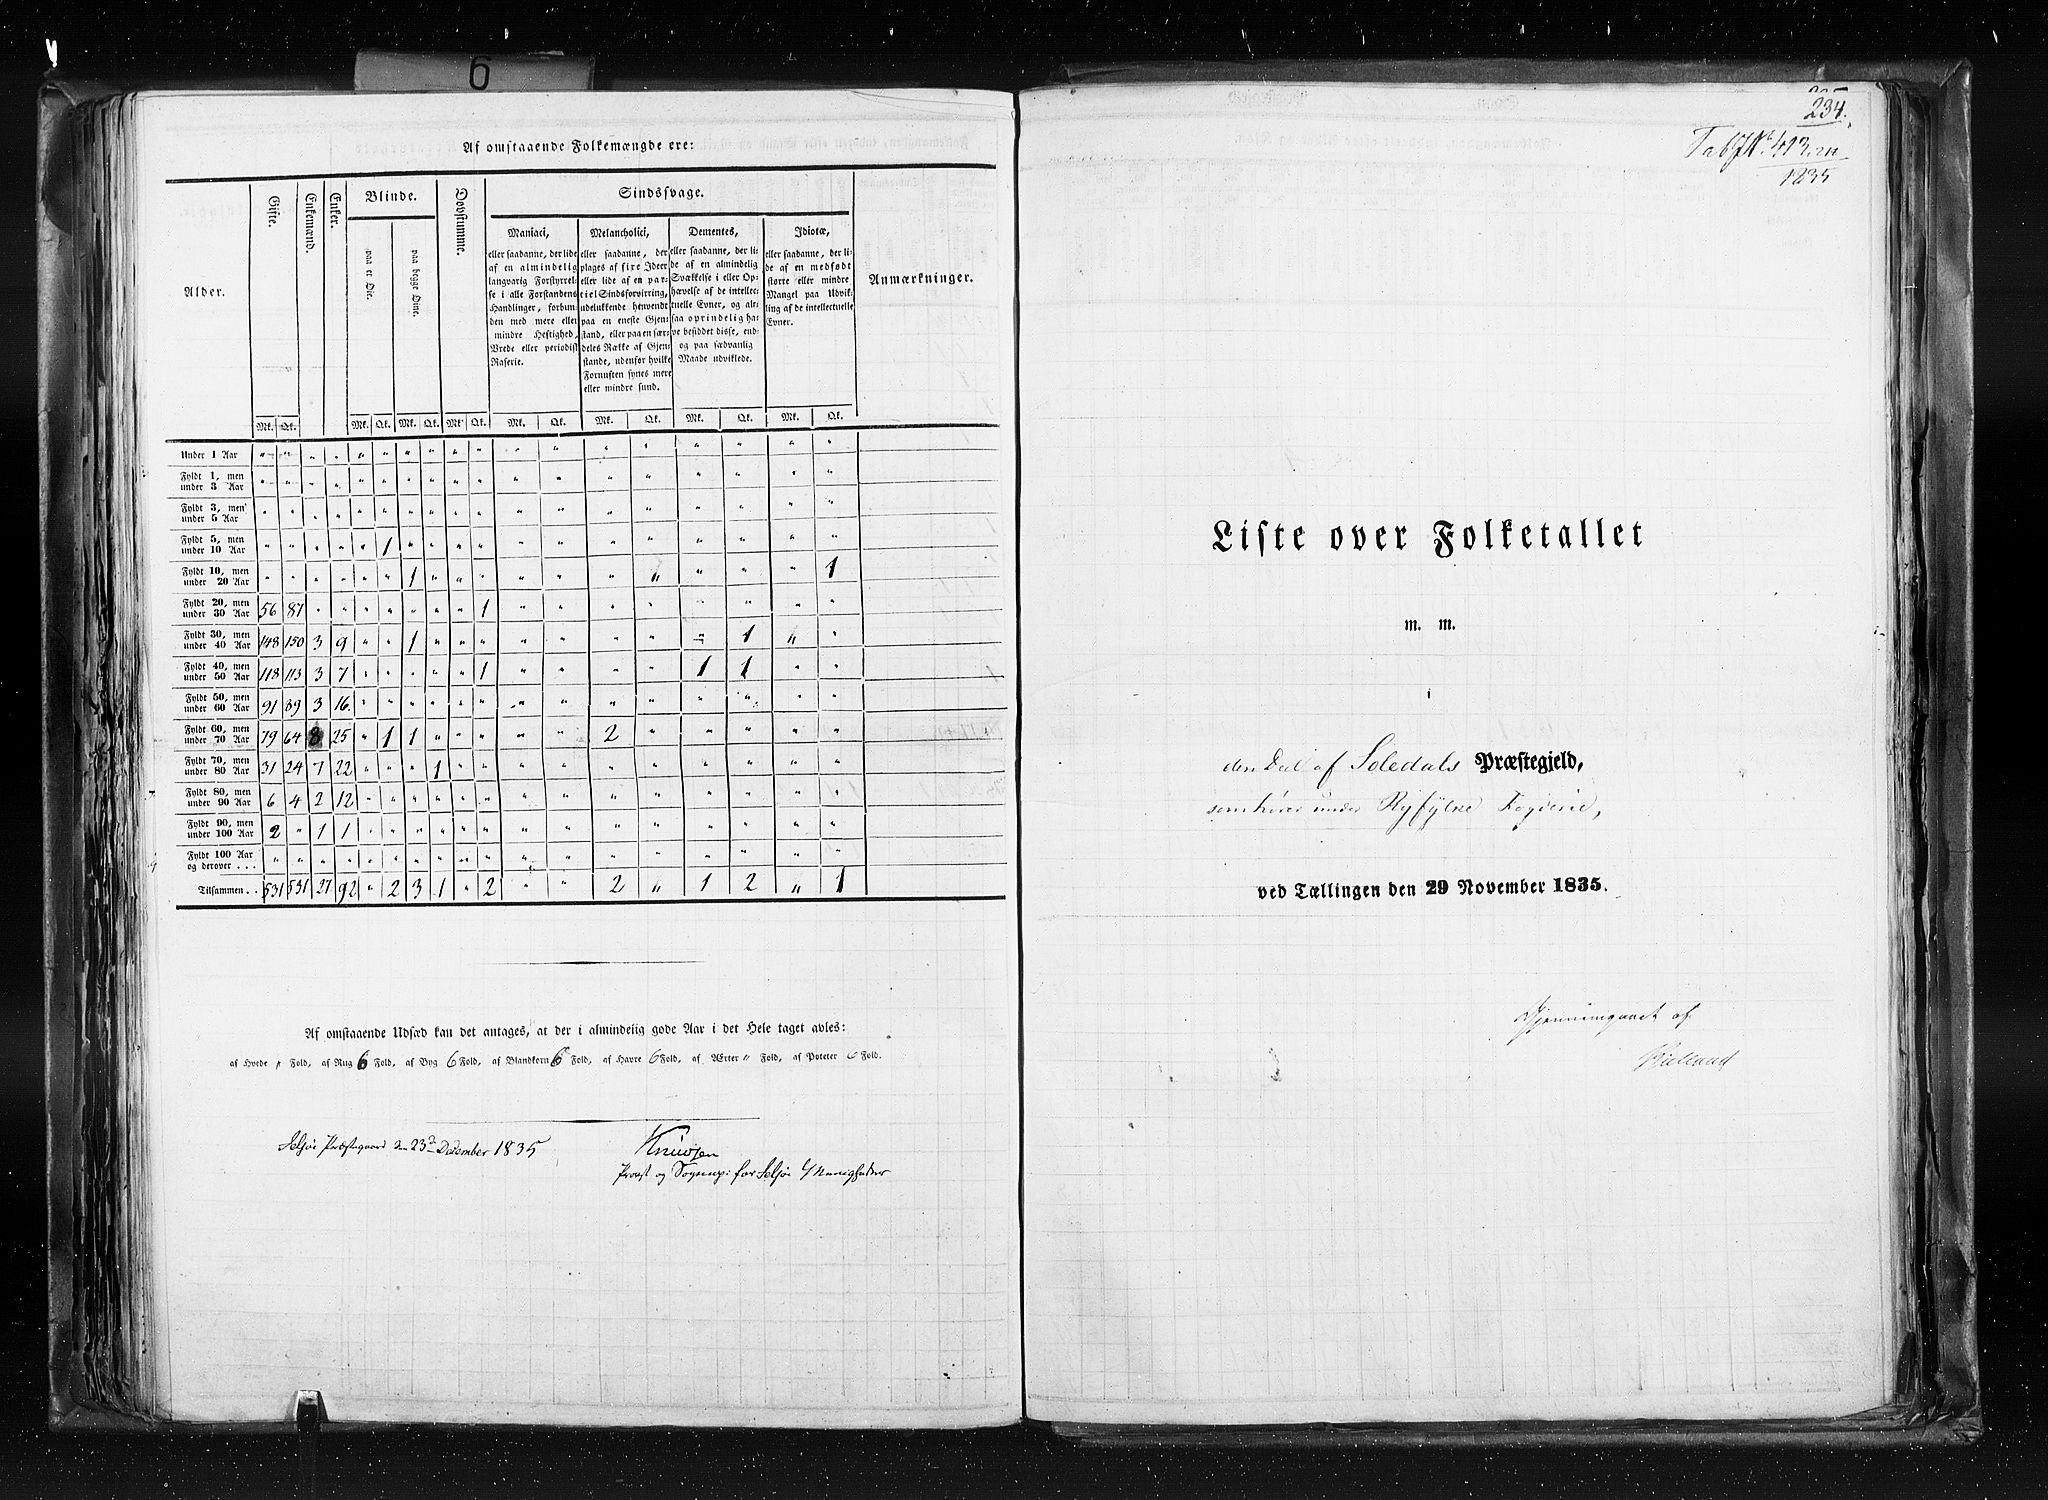 6
Af omstaaende Folkemængde ere:
Alder. Gifte. Enkemænd. Enker. Blinde. Dovstumme. Sindssvage. Anmærkninger.
paa et Øie. paa begge Øine.
Maniaci,
eller saadanne, der lide
af en almindelig
langvarig Forstyrrel-
se i alle Forstandens
Handlinger, forbun-
den med mere eller
mindre Heftighed,
Vrede eller periodisk
Raserie.
Melancholici,
eller saadanne, der
plages af fixe Ideer
eller lide af en par-
tiel Sindsforvirring,
udelukkende henvendt
paa en eneste Gjen-
stand, eller paa en sær-
deles Række af Gjen-
stande, udenfor hvilke
Fornuften synes mere
eller mindre sund.
Dementes,
eller saadanne, der li-
de af en almindelig
Svækkelse i eller Op-
hævelse af de intellec-
tuelle Evner, og alt-
saa oprindelig ha-
ve besiddet disse, end-
og paa sædvanlig
Maade udviklede.
Idiotæ,
eller saadanne, der li-
de af en medfødt
større eller mindre
Mangel paa Udvik-
ling af de intellectuelle
Evner.
Mk. Qk. Mk. Qk. Mk. Qk. Mk. Qk. Mk. Qk. Mk. Qk. Mk. Qk. Mk. Qk.
Under 1 Aar " " " " " " " " " " " " " " " " " "
Fyldt 1, men under 3 Aar " " " " " " " " " " " " " " " " " "
Fyldt 3, men under 5 Aar " " " " " " " " " " " " " " " " " "
Fyldt 5, men under 10 Aar " " " " " 1 " " " " " " " " " " " "
Fyldt 10, men under 20 Aar " " " " " " 1 " " " " " " " " " " 1
Fyldt 20, men under 30 Aar 56 87 " " " " " " " 1 " " " " " " " "
Fyldt 30, men under 40 Aar 148 150 3 9 " " 1 " " " " " " " " 1 " "
Fyldt 40, men under 50 Aar 118 113 3 7 " " " " " 1 " " " " 1 1 " "
Fyldt 50, men under 60 Aar 91 89 3 16 " " " " " " " " " " " " " "
Fyldt 60, men under 70 Aar 79 64 8 25 " 1 1 " " " " " 2 " " " " "
Fyldt 70, men under 80 Aar 31 24 7 22 " " " 1 " " " " " " " " " "
Fyldt 80, men under 90 Aar 6 4 2 12 " " " " " " " " " " " " " "
Fyldt 90, men under 100 Aar 2 " 1 1 " " " " " " " " " " " " " "
Fyldt 100 Aar og derover... " " " " " " " " " " " " " " " " " "
Tilsammen.. 531 531 27 92 " 2 3 1 " 2 " " 2 " 1 2 " 1
Af omstaaende Udsæd kan det antages, at der i almindelig gode Aar i det Hele taget avles:
af Hvede " Fold, af Rug 6 Fold, af Byg 6 Fold, af Blandkorn 6 Fold, af Havre 6 Fold, af Ærter " Fold, af Poteter 6 Fold.
Selsøe Præstegaard den 23d December 1835
Knudsen
Provst og Sognep: for Selsøe Menigheder
234.
Tab. No 413.
1835
Liste over Folketallet
m. m.
i
den Deel af Soledals Præstegjeld,
som hører under Ryfylke Fogderie,
ved Tællingen den 29 November 1835.
Gjennemgaaet af
Kielland